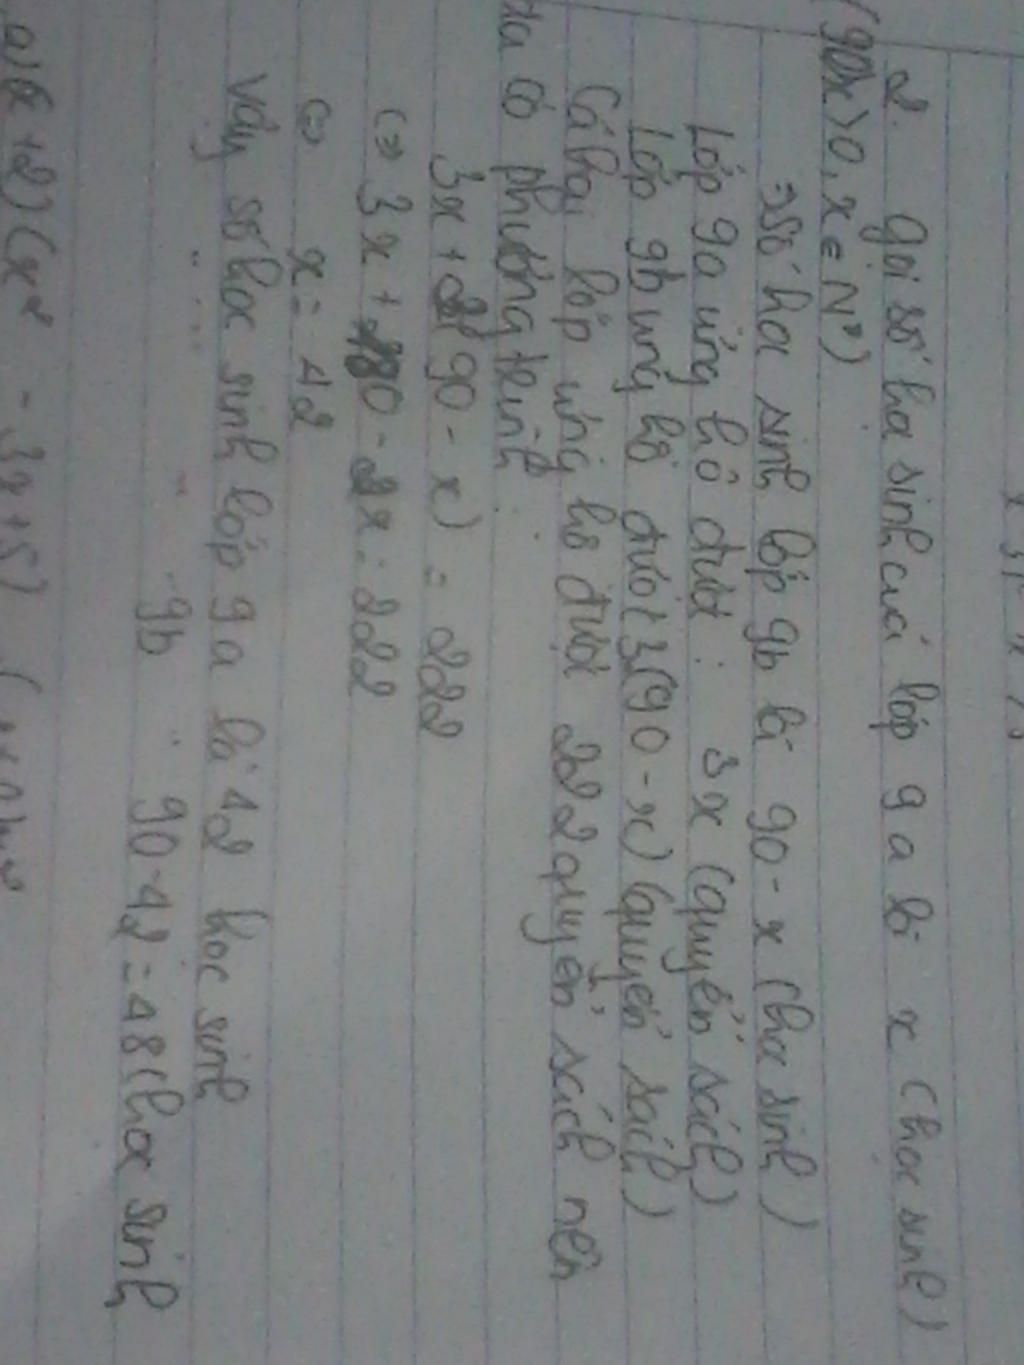 2. Gọi số học sinh của lớp 9a là x (học sinh)
(90>x>0, x ∈ N*)
⇒ số học sinh lớp 9b là 90 - x (học sinh)
Lớp 9a ủng hộ được: 3x (quyển sách)
Lớp 9b ủng hộ được (90 - x) (quyển sách)
Cả hai lớp ủng hộ được 222 quyển sách nên
ta có phương trình:
3x + 2(90 - x) = 222
⇔ 3x + 180 - 2x = 222
⇔ x = 42
Vậy số học sinh lớp 9a là 42 học sinh
.. ... " 9b .. 90-42 = 48 (học sinh
a) (x+2)(x² - 3x+5)